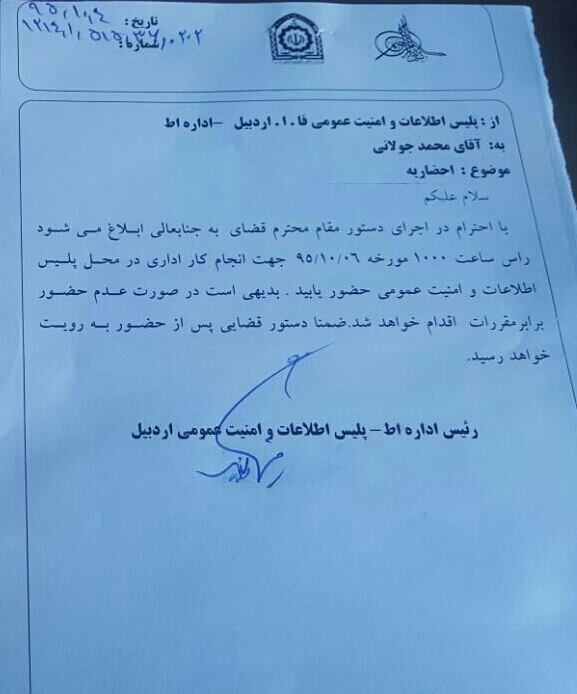 تاریخ : ۹۵,۱۰,۴
شماره :
از : پلیس اطلاعات و امنیت عمومی فا . ا . اردبیل –اداره اط
به: آقای محمد جولانی
موضوع : احضاریه
سلام علیکم
با احترام در اجرای دستور مقام محترم قضای به جنابعالی ابلاغ می شود
راس ساعت ۱۰۰۰ مورخه ۹۵/۱۰/۰۶ جهت انجام کار اداری در محل پلیس
اطلاعات و امنیت عمومی حضور یابید . بدیهی است در صورت عدم حضور
برابرمقررات اقدام خواهد شد.ضمنا دستور قضایی پس از حضور به رویت
خواهد رسید.
رئیس اداره اط – پلیس اطلاعات و امنیت عمومی اردبیل